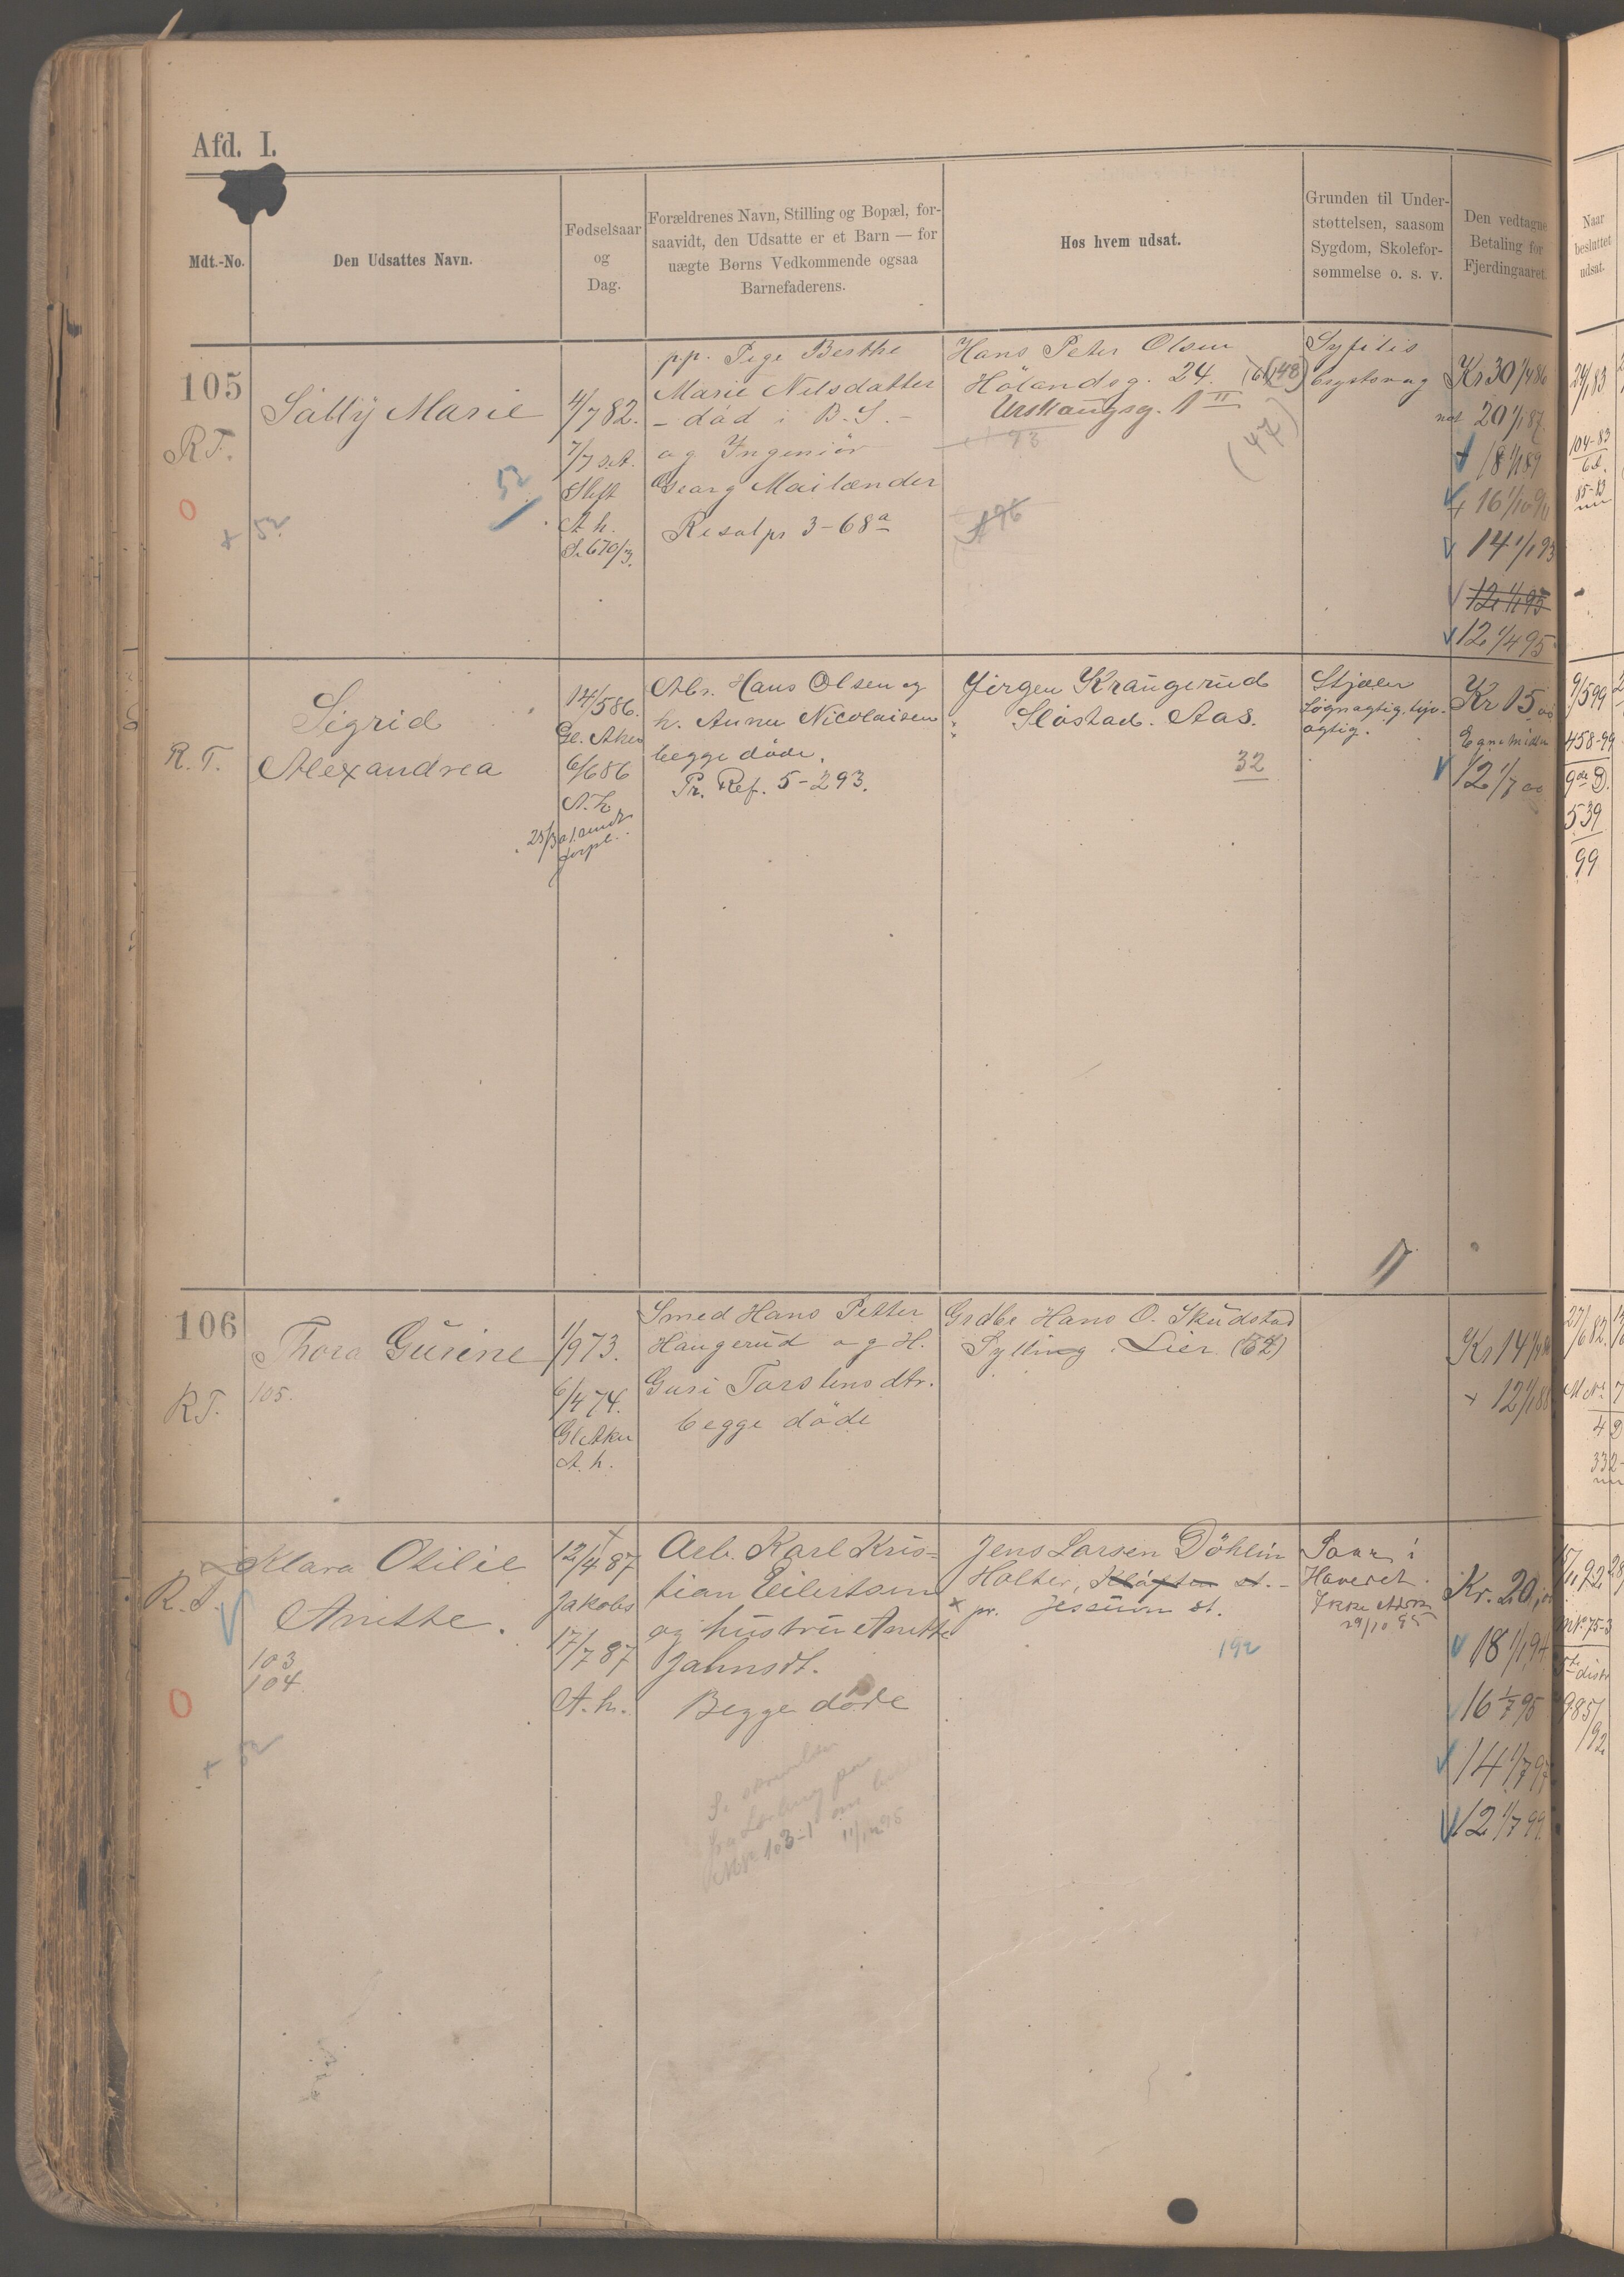 Afd. I.
Mdt.-No.
Den Udsattes Navn.
Fødselsaar
og
Dag.
Forældrenes Navn, Stilling og Bopæl, for-
saavidt, den Udsatte er et Barn — for
uægte Børns Vedkommende ogsaa
Barnefaderens.
Hos hvem udsat.
Grunden til Under-
støttelsen, saasom
Sygdom, Skolefor-
sømmelse o. s. v.
Den vedtagne
Betaling for
Fjerdingaaret.
Naar
besluttet
udsat.
105
R.T.
Sally Marie
4/7 82.
7/7 s.A.
A. h.
52
+ 52
pp. Pige Berthe
Marie Nilsdatter
- död i B.S. -
og Ingeniör
Georg Mailænder
Resolpr 3-68a
Hans Peter Olsen
Hölandsg. 24. (48)
Urskaugsg. 1 II
93
(47)
96
Syfilis
brystsvag
Kr 30 1/4 86
20 1/1 87
18 1/1 89
+ 16 1/10 90
14 1/1 93
12 1/1 95
12 1/4 95
24/1 83
104-83
R. T.
Sigrid
Alexandrea
14/5 86.
Gl. Aker
6/6 86
A. h.
Arb. Hans Olsen og
h. Anna Nicolaisen
begge döde.
Pr. Ref. 5-293.
Jörgen Kraugerud
Slöstad. Aas.
32
Stjæler
Løgnagtig, tyv-
agtig.
Kr 15 00
Egne Midler
12 1/7 00
9/5 99
458-99
9de D.
539
99
106
R.T.
Thora Gurine
105.
1/9 73.
6/4 74.
Gl Aker
A. h.
Smed Hans Petter
Haugerud og H.
Guri Torstensdtr.
begge döde
Grdbr Hans O. Skudstad
Sylling. Lier.
Kr 14
+ 12 1/1 88
27/6 82.
R.T.
Klara Otilie
Anette.
103
104
+ 52
12/4 87
Jakobs
17/7 87
A. h.
Arb. Karl Kris-
tian Eilertsen
og hustru Anette
Jahnsdt.
Begge döde
No 103-1
Jens Larsen Döhlin
Holter, Klöften st. -
pr. Jessum st.
192
Saar i
Hovedet.
29/10 95
Kr. 20,00
18 1/1 94
16 1/7 95
14 1/7 97
12 1/7 99
985/
192